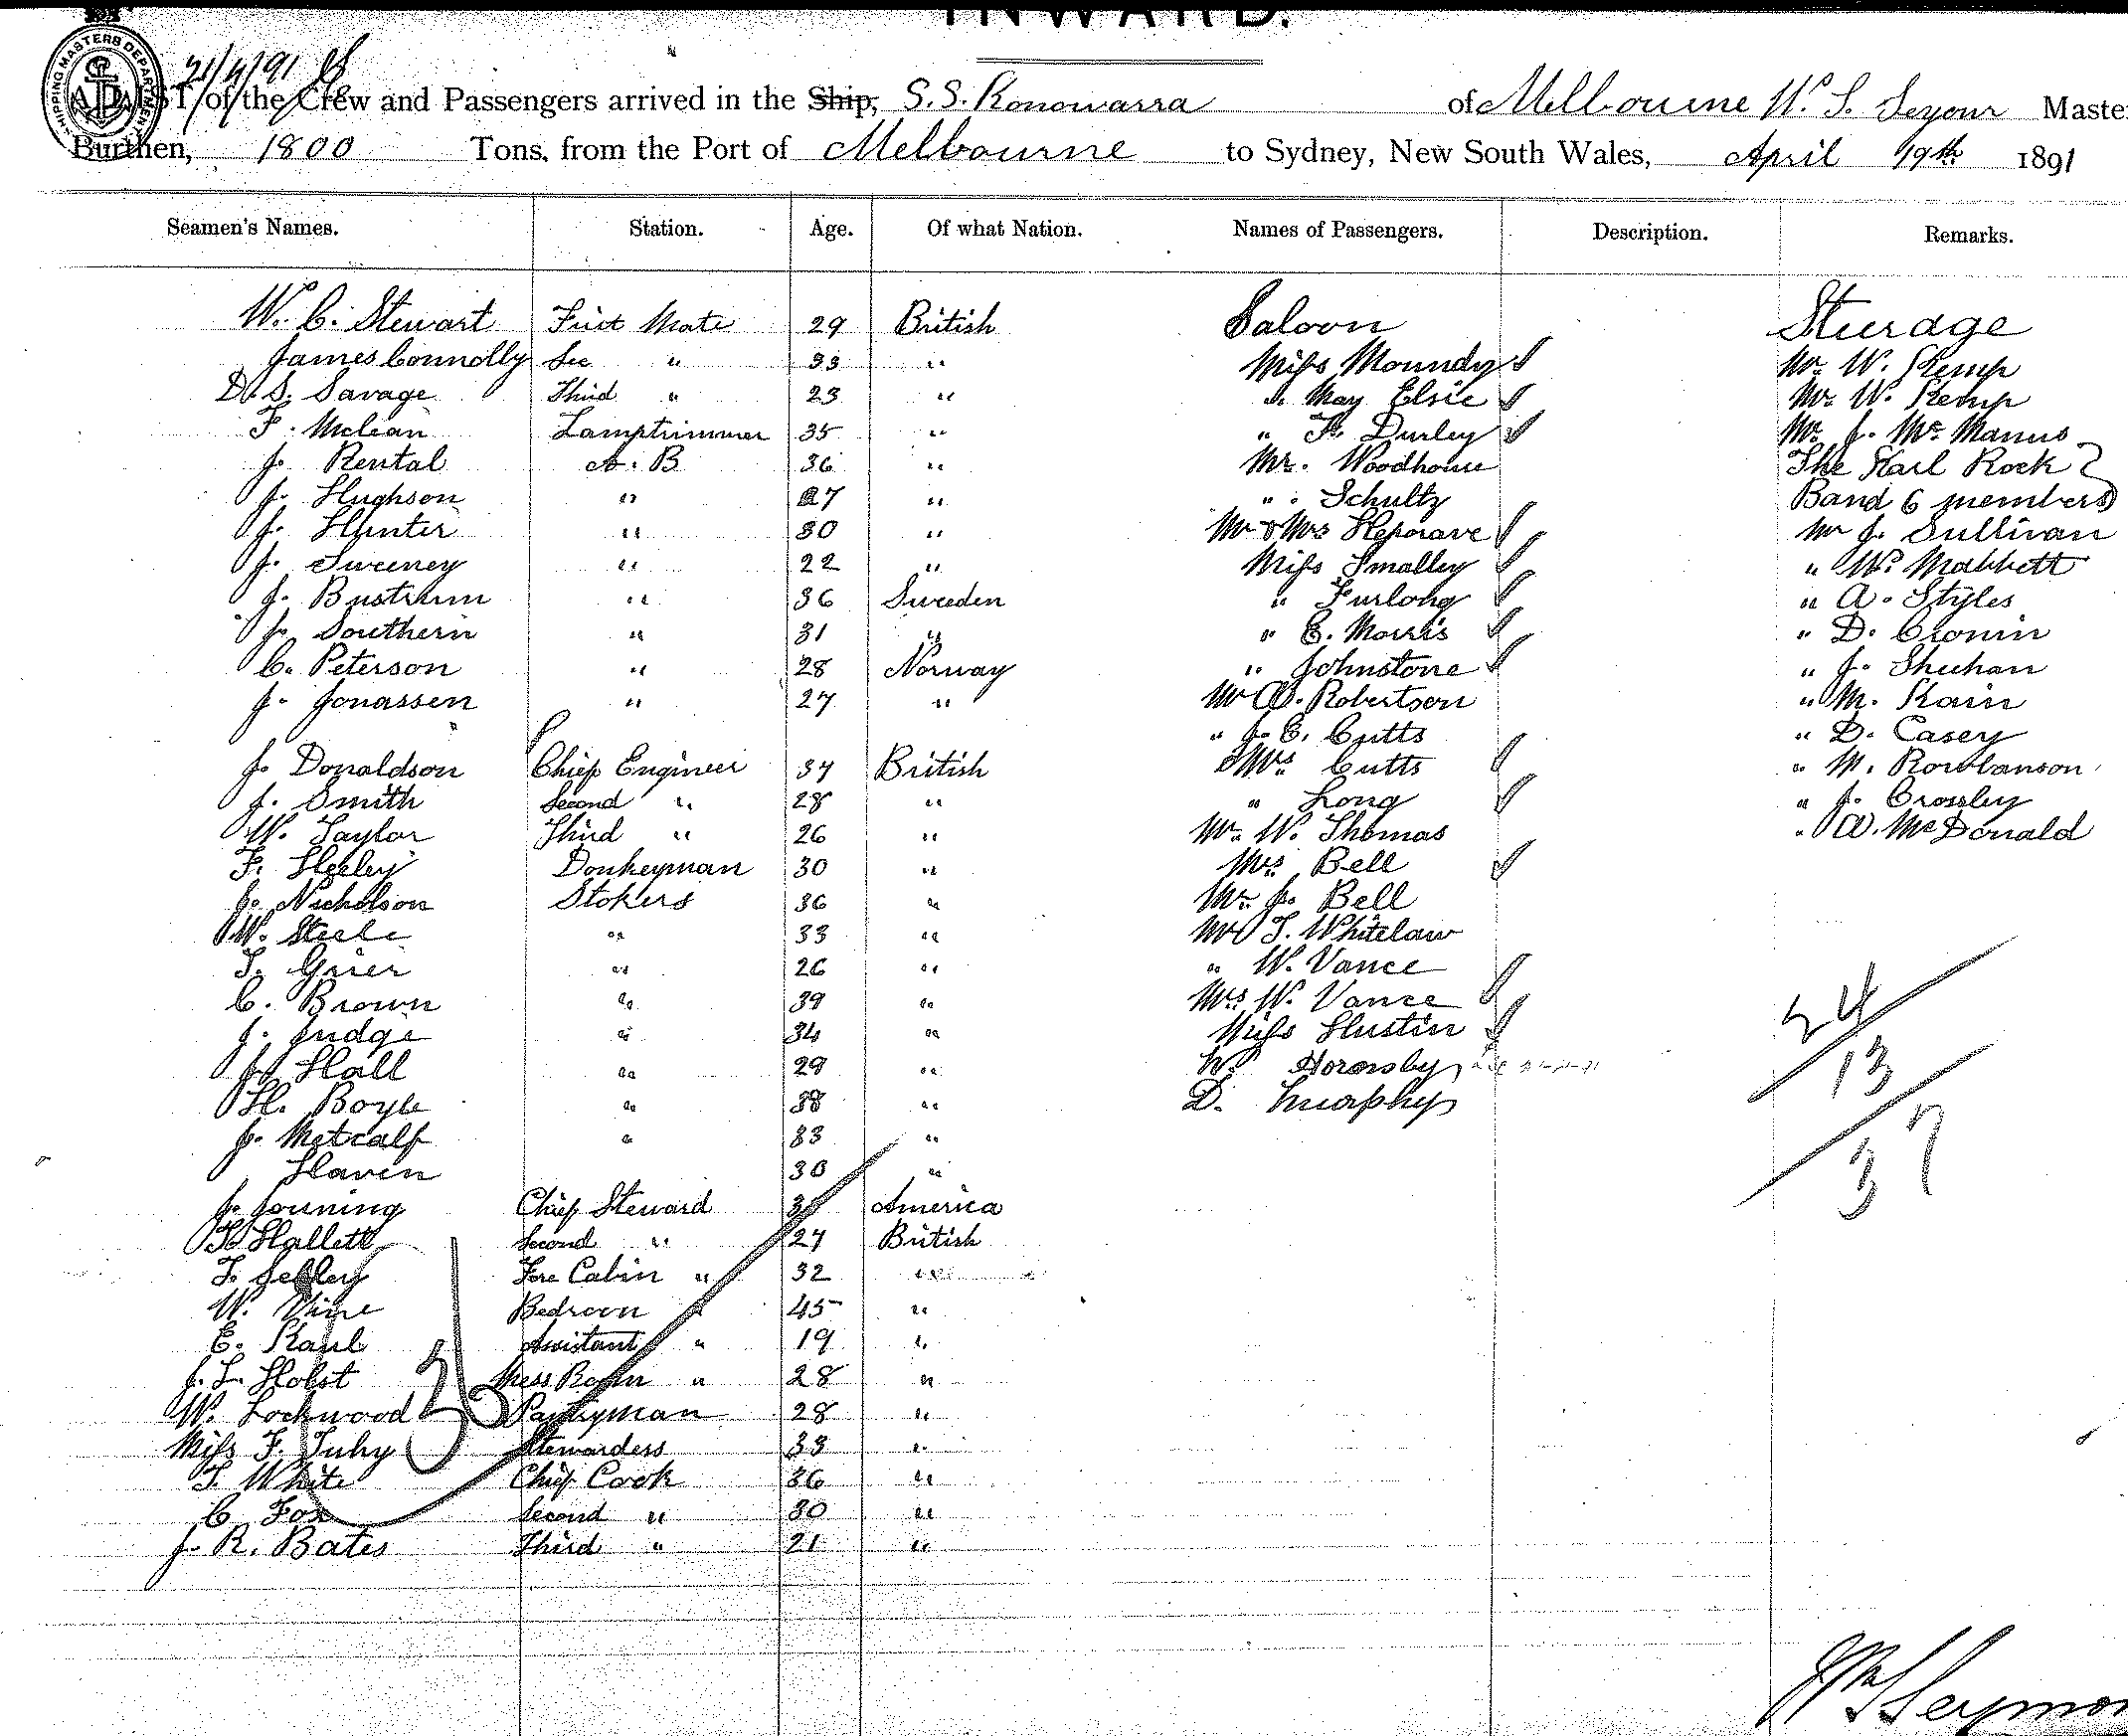 INWARD.
SHIPPING MASTERS DEPARTMENT
21/4/91
LIST of the Crew and Passengers arrived in the Ship, S.S. Konowarra of Melbourne W. S. Seyour Master
Burthen, 1800 Tons, from the Port of Melbourne to Sydney, New South Wales, April 19th 1891
Seamen's Names. Station. Age. Of what Nation. Names of Passengers. Description. Remarks.
W. C. Stewart First Mate 29 British Saloon Steerage
James Connolly Sec " 33 " Miss Moundy Mr. W. Kemp
D. S. Savage Third " 23 " " May Elsie Mr. W. Kemp
F. Mclean Lamptrimmer 35 " " F. Durley Mr. J. Mc Manus
J. Rental A. B 36 " Mr. Woodhouse The Karl Rock
J. Hughson " 27 " " Schultz Band 6 members
J. Hunter " 30 " Mr & Mrs Hepgrave Mr J. Sullivan
J. Sweeney " 22 " Miss Smalley " W. Mabbett
J. Bustrum " 36 Sweden " Furlong " A. Styles
J. Southern " 31 " " E. Morris " D. Cronin
C. Peterson " 28 Norway " Johnstone " J. Sheehan
J. Jonassen " 27 " Mr A. Robertson " M. Kain
" J. E. Cutts " D. Casey
J. Donaldson Chief Engineer 34 British Mrs Cutts " M. Rowlanson
J. Smith Second " 28 " " Long " J. Crossley
W. Taylor Third " 26 " Mr. W. Thomas " A. McDonald
F. Heeley Donkeyman 30 " Mrs Bell
J. Nicholson Stokers 36 " Mr. J. Bell
W. Steele " 33 " Mr J. Whitelaw
T. Grier " 26 " " W. Vance
C. Brown " 39 " Mrs W. Vance
J. Judge " 34 " Miss Hustin
J. Hall " 29 " W. Hornsby
H. Boyle " 38 " D. Murphy
J. Metcalf " 33 "
Haven 30 "
J. Jouning Chief Steward America
H Hallett Second " 27 British
T. Jeffley Fore Cabin " 32 "
W. Vine Bedroom " 45 "
E. Kaul Assistant " 19 "
J. L. Holst Mess Room " 28 "
W. Lockwood Pantryman 28 "
Miss F. Tuhy Stewardess 33 "
T. White Chief Cook 36 "
C Fox Second " 30 "
J. R. Bates Third " 21 "
24
13
37